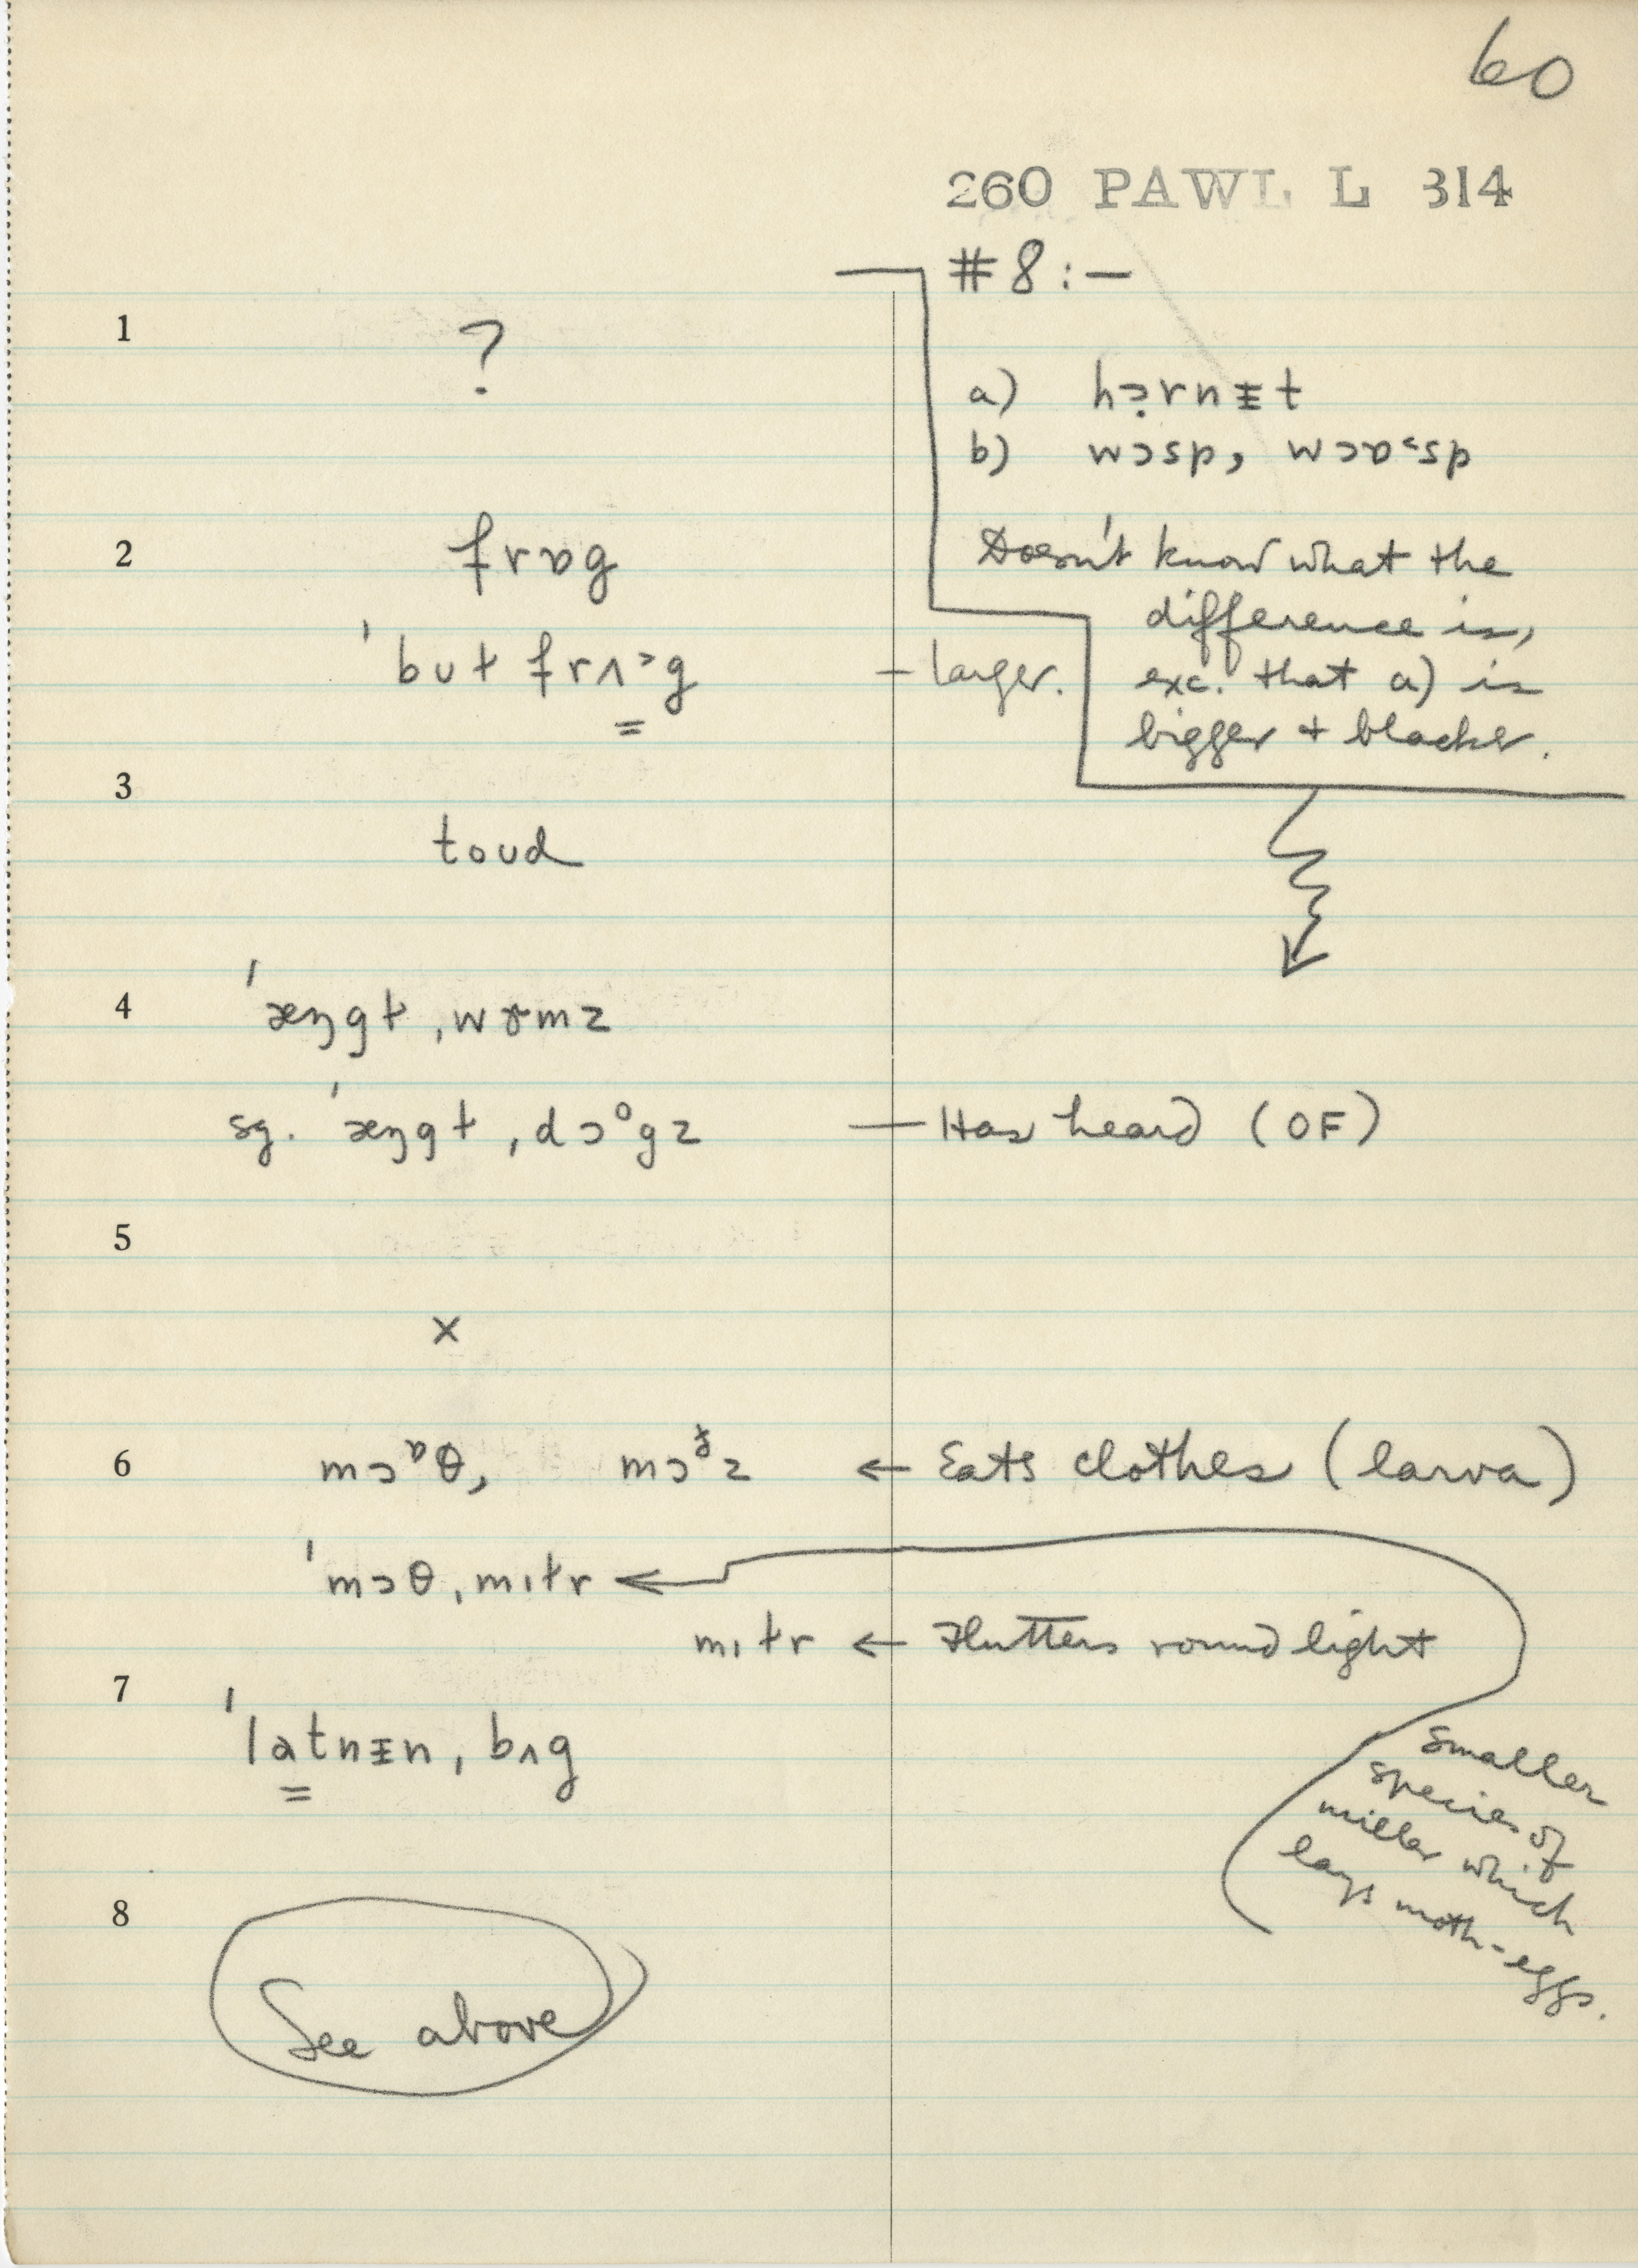 60
260 PAWL L 314
#8:—
1 ?
a) hɔ̣rnɪ̵t
b) wɔsp, wɔɒˢsp
Doesn't know what the
difference is,
exc. that a) is
bigger + blacker.
2 frɒg
ˈbʊɫ frʌ˃g — larger.
3
toʊd
4 ˈæŋgɫ ˌwɝmz
sg. ˈæŋgɫ ˌdɔᵒgz — Has heard (OF)
5
×
6 mɔᶛθ, mɔᵟz ← Eats clothes (larva)
ˈmɔθ ˌmɪɫr ←
mɪɫr ← Flutters round light
Smaller
species of
miller which
lays moth-eggs.
7
ˈlatnɪ̵n ˌbʌg
8
See above